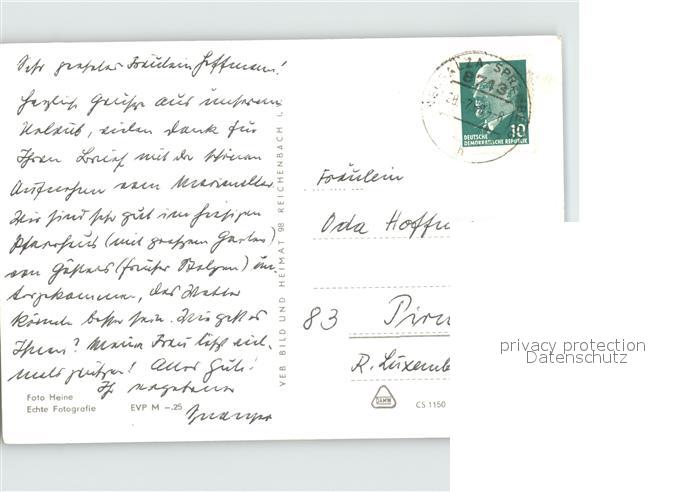 Sehr geehrtes Fräulein Hoffmann!
herzliche Grüße aus unserem
Urlaub, vielen Dank für
Ihren Brief mit den schönen
Aufnahmen vom
Wir sind sehr gut im hiesigen
Pfarrhaus (mit großem Garten)
von (früher) un-
tergekommen, das Wetter
könnte besser sein. Wie geht es
Ihnen? Meine Frau läßt viel-
mals grüßen! Alles Gute!
Ihr
Foto Heine
Echte Fotografie EVP M –.25
VEB BILD UND HEIMAT 98 REICHENBACH I.
8743
10
DEUTSCHE
DEMOKRATISCHE REPUBLIK
Fräulein
Oda Hoff
83 Pirn
R. Luxemb
DAMW
CS 1150
privacy protection
Datenschutz